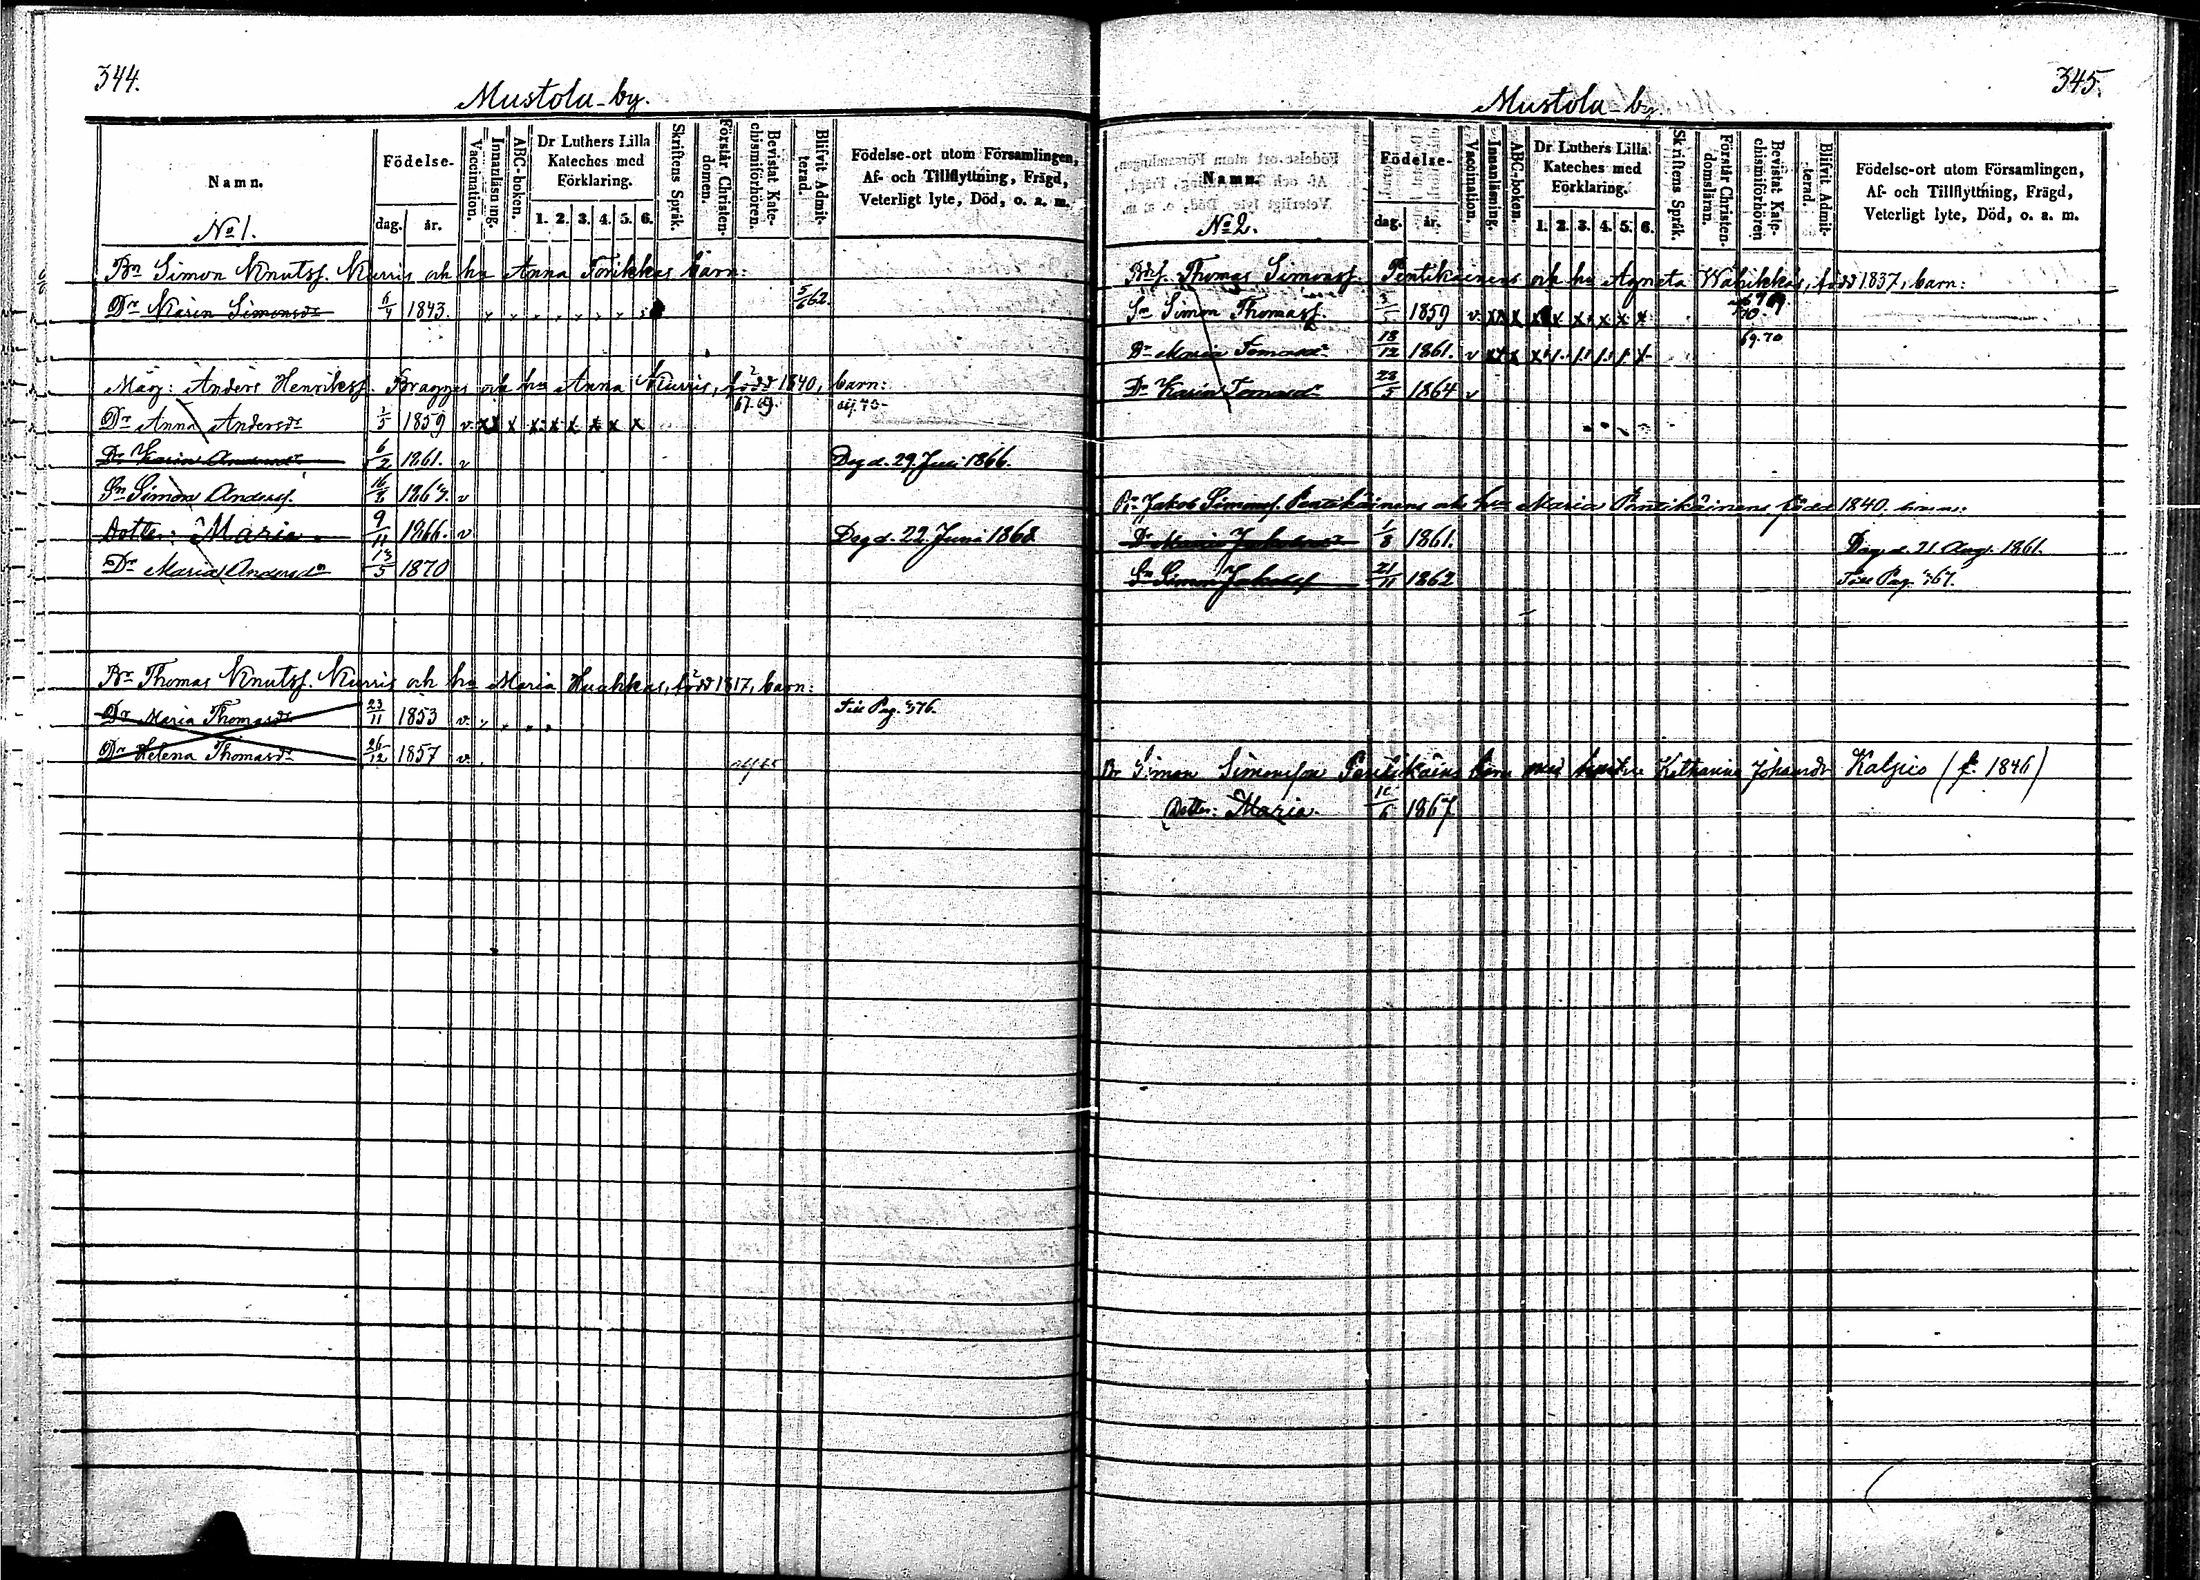 344.
Mustola-by.
Namn.
Födelse-
dag. år.
Vaccination.
Innanläsning.
ABC-boken.
Dr Luthers Lilla
Kateches med
Förklaring.
1. 2. 3. 4. 5. 6.
Skriftens Språk.
Förstår Christen-
domen.
Bevistat Kate-
chismiförhören.
Blifvit Admit-
terad.
Födelse-ort utom Församlingen,
Af- och Tillflyttning, Frägd,
Veterligt lyte, Död, o. a. m.
No 1.
Bn Simon Knutss. Kurris och hu Anna barn:
Dr Karin Simonsdr 1843. 5/6 62.
Måg: Anders Henrikss. Bragges och hu Anna Kurris, född 1840, barn:
67. 69.
Dr Anna Andersdr 1/5 1859 v x x x x x x x x x
Dr Karin Andersdr 6/2 1861. v Deg d. 29. Juni 1866.
Sn Simon Anderss. v
Dotter: Maria 9/11 1866. v Deg d. 22. Juni 1868
Dr Maria Andersdr 13/5 1870
Bn Thomas Knutss. Kurris och hu Maria Huahkas, född 1817, barn:
Dr Maria Thomasdr 23/11 1853 v. Till Pag. 376.
Dr Helena Thomasdr 26/12 1857 v.
345.
Mustola-by.
Namn.
Födelse-
dag. år.
Vaccination.
Innanläsning.
ABC-boken.
Dr Luthers Lilla
Kateches med
Förklaring.
1. 2. 3. 4. 5. 6.
Skriftens Språk.
Förstår Christen-
domsläran.
Bevistat Kate-
chismiförhören
Blifvit Admit-
terad.
Födelse-ort utom Församlingen,
Af- och Tillflyttning, Frägd,
Veterligt lyte, Död, o. a. m.
No 2.
Thomas Simonss. Pentikäinens och hu Agneta Wabikkas, född 1837, barn:
Sn Simon Thomass. 1859 v x x x x x x x x
69. 70
Dr Maria Tomasdr 18/12 1861. v
Dr Karin Tomasdr 28/5 1864 v
Bn Jakob Simonss. Pentikäinens och hu Maria Pentikäinens född 1840, barn:
Dr Maria Jakobsdr 1/8 1861. Deg d. 21 Aug. 1861.
Sn Simon Jakobss 21/11 1862 Till Pag. 367.
Br Simon Simonsson Pentikäins barn med hustru Katharina Johansdr Kalpio (f. 1846)
Dotter: Maria. 1867